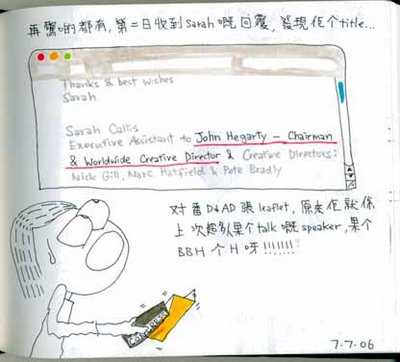 再驚啲都有,第二日收到Sarah嘅回覆,發現佢个title...
Thanks & best wishes
Sarah
Sarah Callis
Executive Assistant to John Hegarty – Chairman
& Worldwide Creative Director & Creative Directors:
Nick Gill, Marc Hatfield & Pete Bradly
对番D&AD張leaflet,原來佢就係
上次 个talk嘅speaker,果个
BBH 个 H 呀!!!!!!!
7.7.06